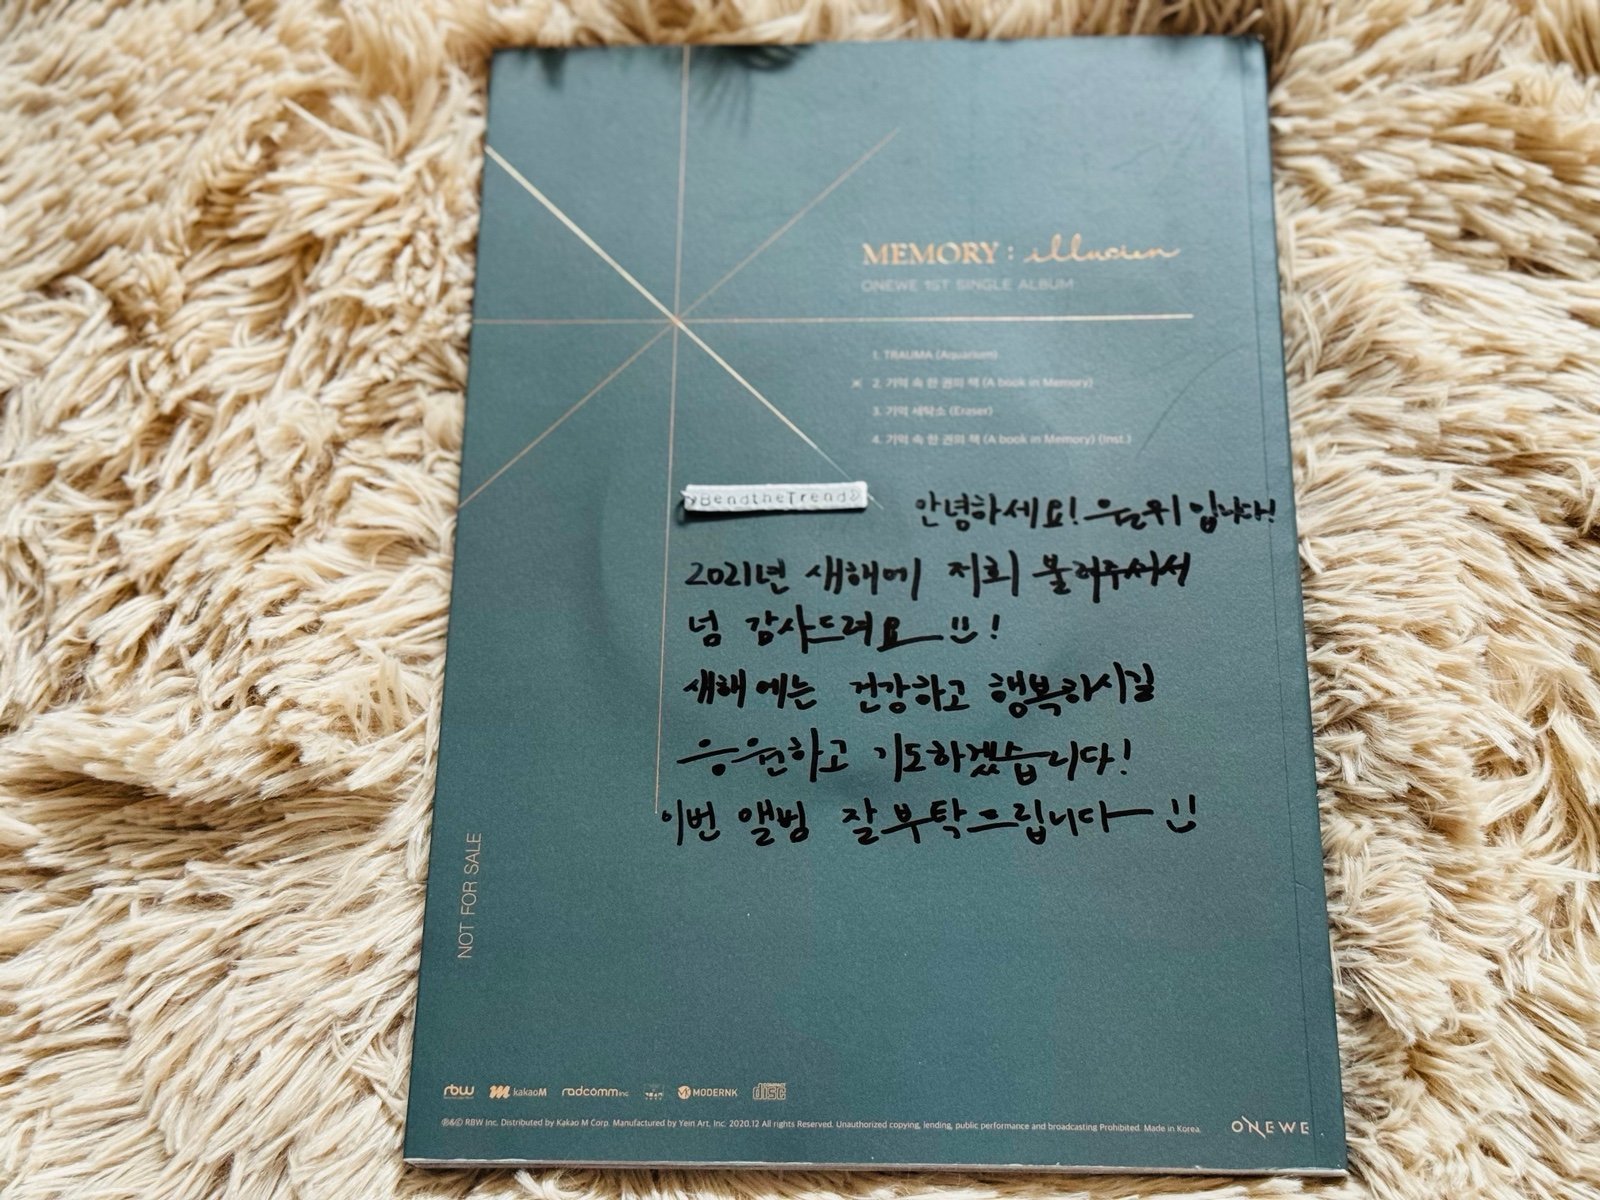 MEMORY : illusion
ONEWE 1ST SINGLE ALBUM
1. TRAUMA (Aquarium)
2. 기억 속 한 권의 책 (A book in Memory)
3. 기억 세탁소 (Eraser)
4. 기억 속 한 권의 책 (A book in Memory) (Inst.)
BendtheTrend
안녕하세요! 원위 입니다!
2021년 새해에 저희 불러주셔서
넘 감사드려요 !
새해에는 건강하고 행복하시길
응원하고 기도하겠습니다!
이번 앨범 잘 부탁드립니다
NOT FOR SALE
rbw kakaoM radcomm inc MODERNK COMPACT disc
℗&© RBW Inc. Distributed by Kakao M Corp. Manufactured by Yein Art, Inc. 2020.12 All rights Reserved. Unauthorized copying, lending, public performance and broadcasting Prohibited. Made in Korea.
ONEWE